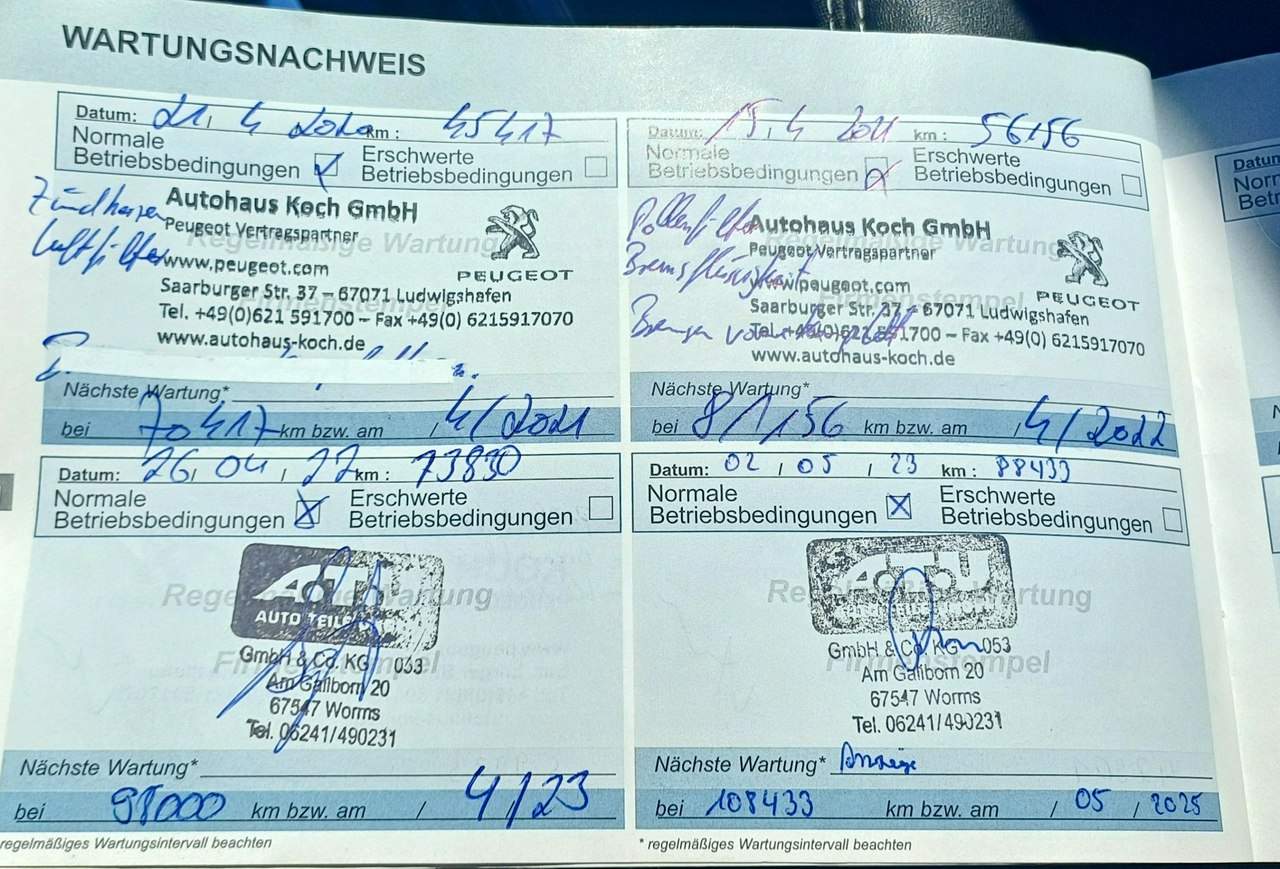 WARTUNGSNACHWEIS
Datum: 21. 4 2020 km : 45417
Normale Betriebsbedingungen
Erschwerte Betriebsbedingungen
Zündkerzen
Luftfilter
Autohaus Koch GmbH
Peugeot Vertragspartner
Regelmäßige Wartung
www.peugeot.com
PEUGEOT
Saarburger Str. 37 – 67071 Ludwigshafen
Firmenstempel
Tel. +49(0)621 591700 – Fax +49(0) 6215917070
www.autohaus-koch.de
Nächste Wartung*
bei 70417 km bzw. am / 4/2021
Datum: 15. 4 2021 km : 56156
Normale Betriebsbedingungen
Erschwerte Betriebsbedingungen
Pollenfilter
Bremsflüssigkeit
Bremsen
Autohaus Koch GmbH
Peugeot Vertragspartner
Regelmäßige Wartung
www.peugeot.com
PEUGEOT
Saarburger Str. 37 – 67071 Ludwigshafen
Firmenstempel
Tel. +49(0)621 591700 – Fax +49(0) 6215917070
www.autohaus-koch.de
Nächste Wartung*
bei 81156 km bzw. am / 4/2022
Datum: 26/ 04 / 22 km : 73830
Normale Betriebsbedingungen
Erschwerte Betriebsbedingungen
A.T.U
AUTO TEILE
Regelmäßige Wartung
GmbH & Co. KG 053
Firmenstempel
Am Gallborn 20
67547 Worms
Tel. 06241/490231
Nächste Wartung*
bei 98000 km bzw. am / 4/23
regelmäßiges Wartungsintervall beachten
Datum: 02 / 05 / 23 km : 88433
Normale Betriebsbedingungen
Erschwerte Betriebsbedingungen
A.T.U
Regelmäßige Wartung
GmbH & Co. KG 053
Firmenstempel
Am Gallborn 20
67547 Worms
Tel. 06241/490231
Nächste Wartung* Anzeige
bei 108433 km bzw. am / 05 / 2025
* regelmäßiges Wartungsintervall beachten